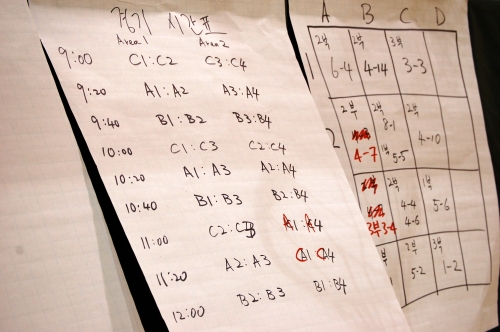 경기 시간표
Area1 Area2
9:00 C1:C2 C3:C4
9:20 A1:A2 A3:A4
9:40 B1:B2 B3:B4
10:00 C1:C3 C2:C4
10:20 A1:A3 A2:A4
10:40 B1:B3 B2:B4
11:00 C2:C3 A1:A4
11:20 A2:A3 C1:C4
12:00 B2:B3 B1:B4
A B C D
1 2부 2부 3부
6-4 4-14 3-3
2 2부 2부 2부
8-1
4-7 5-5 4-10
2부 1부
4-4 5-6
3부3-4 4-6
2부 3부
5-2 1-2